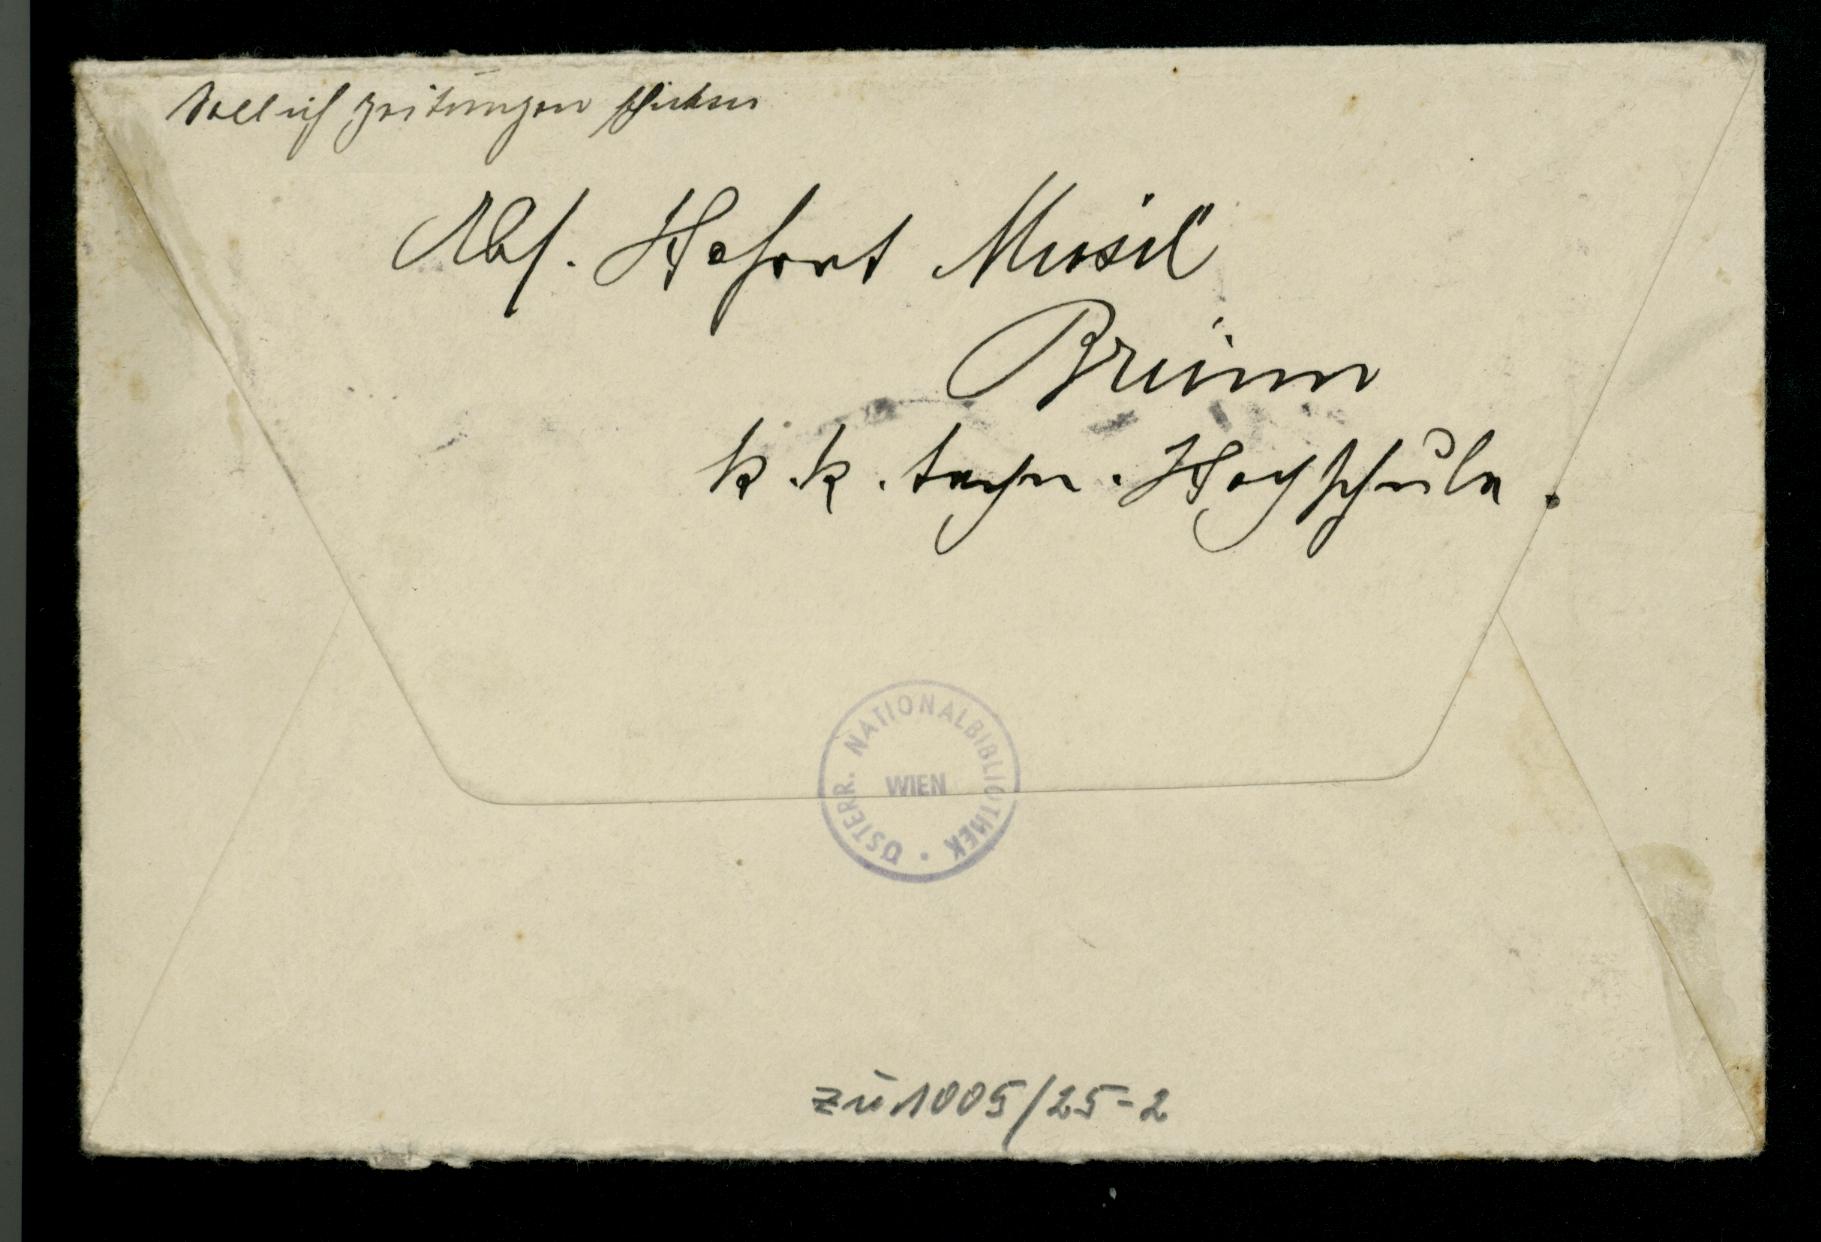 Soll ich Zeitungen schicken
Abs. Hofrat Musil
Brünn
k.k. techn. Hochschule.
ÖSTERR. NATIONALBIBLIOTHEK •
WIEN
zu 1005/25-2